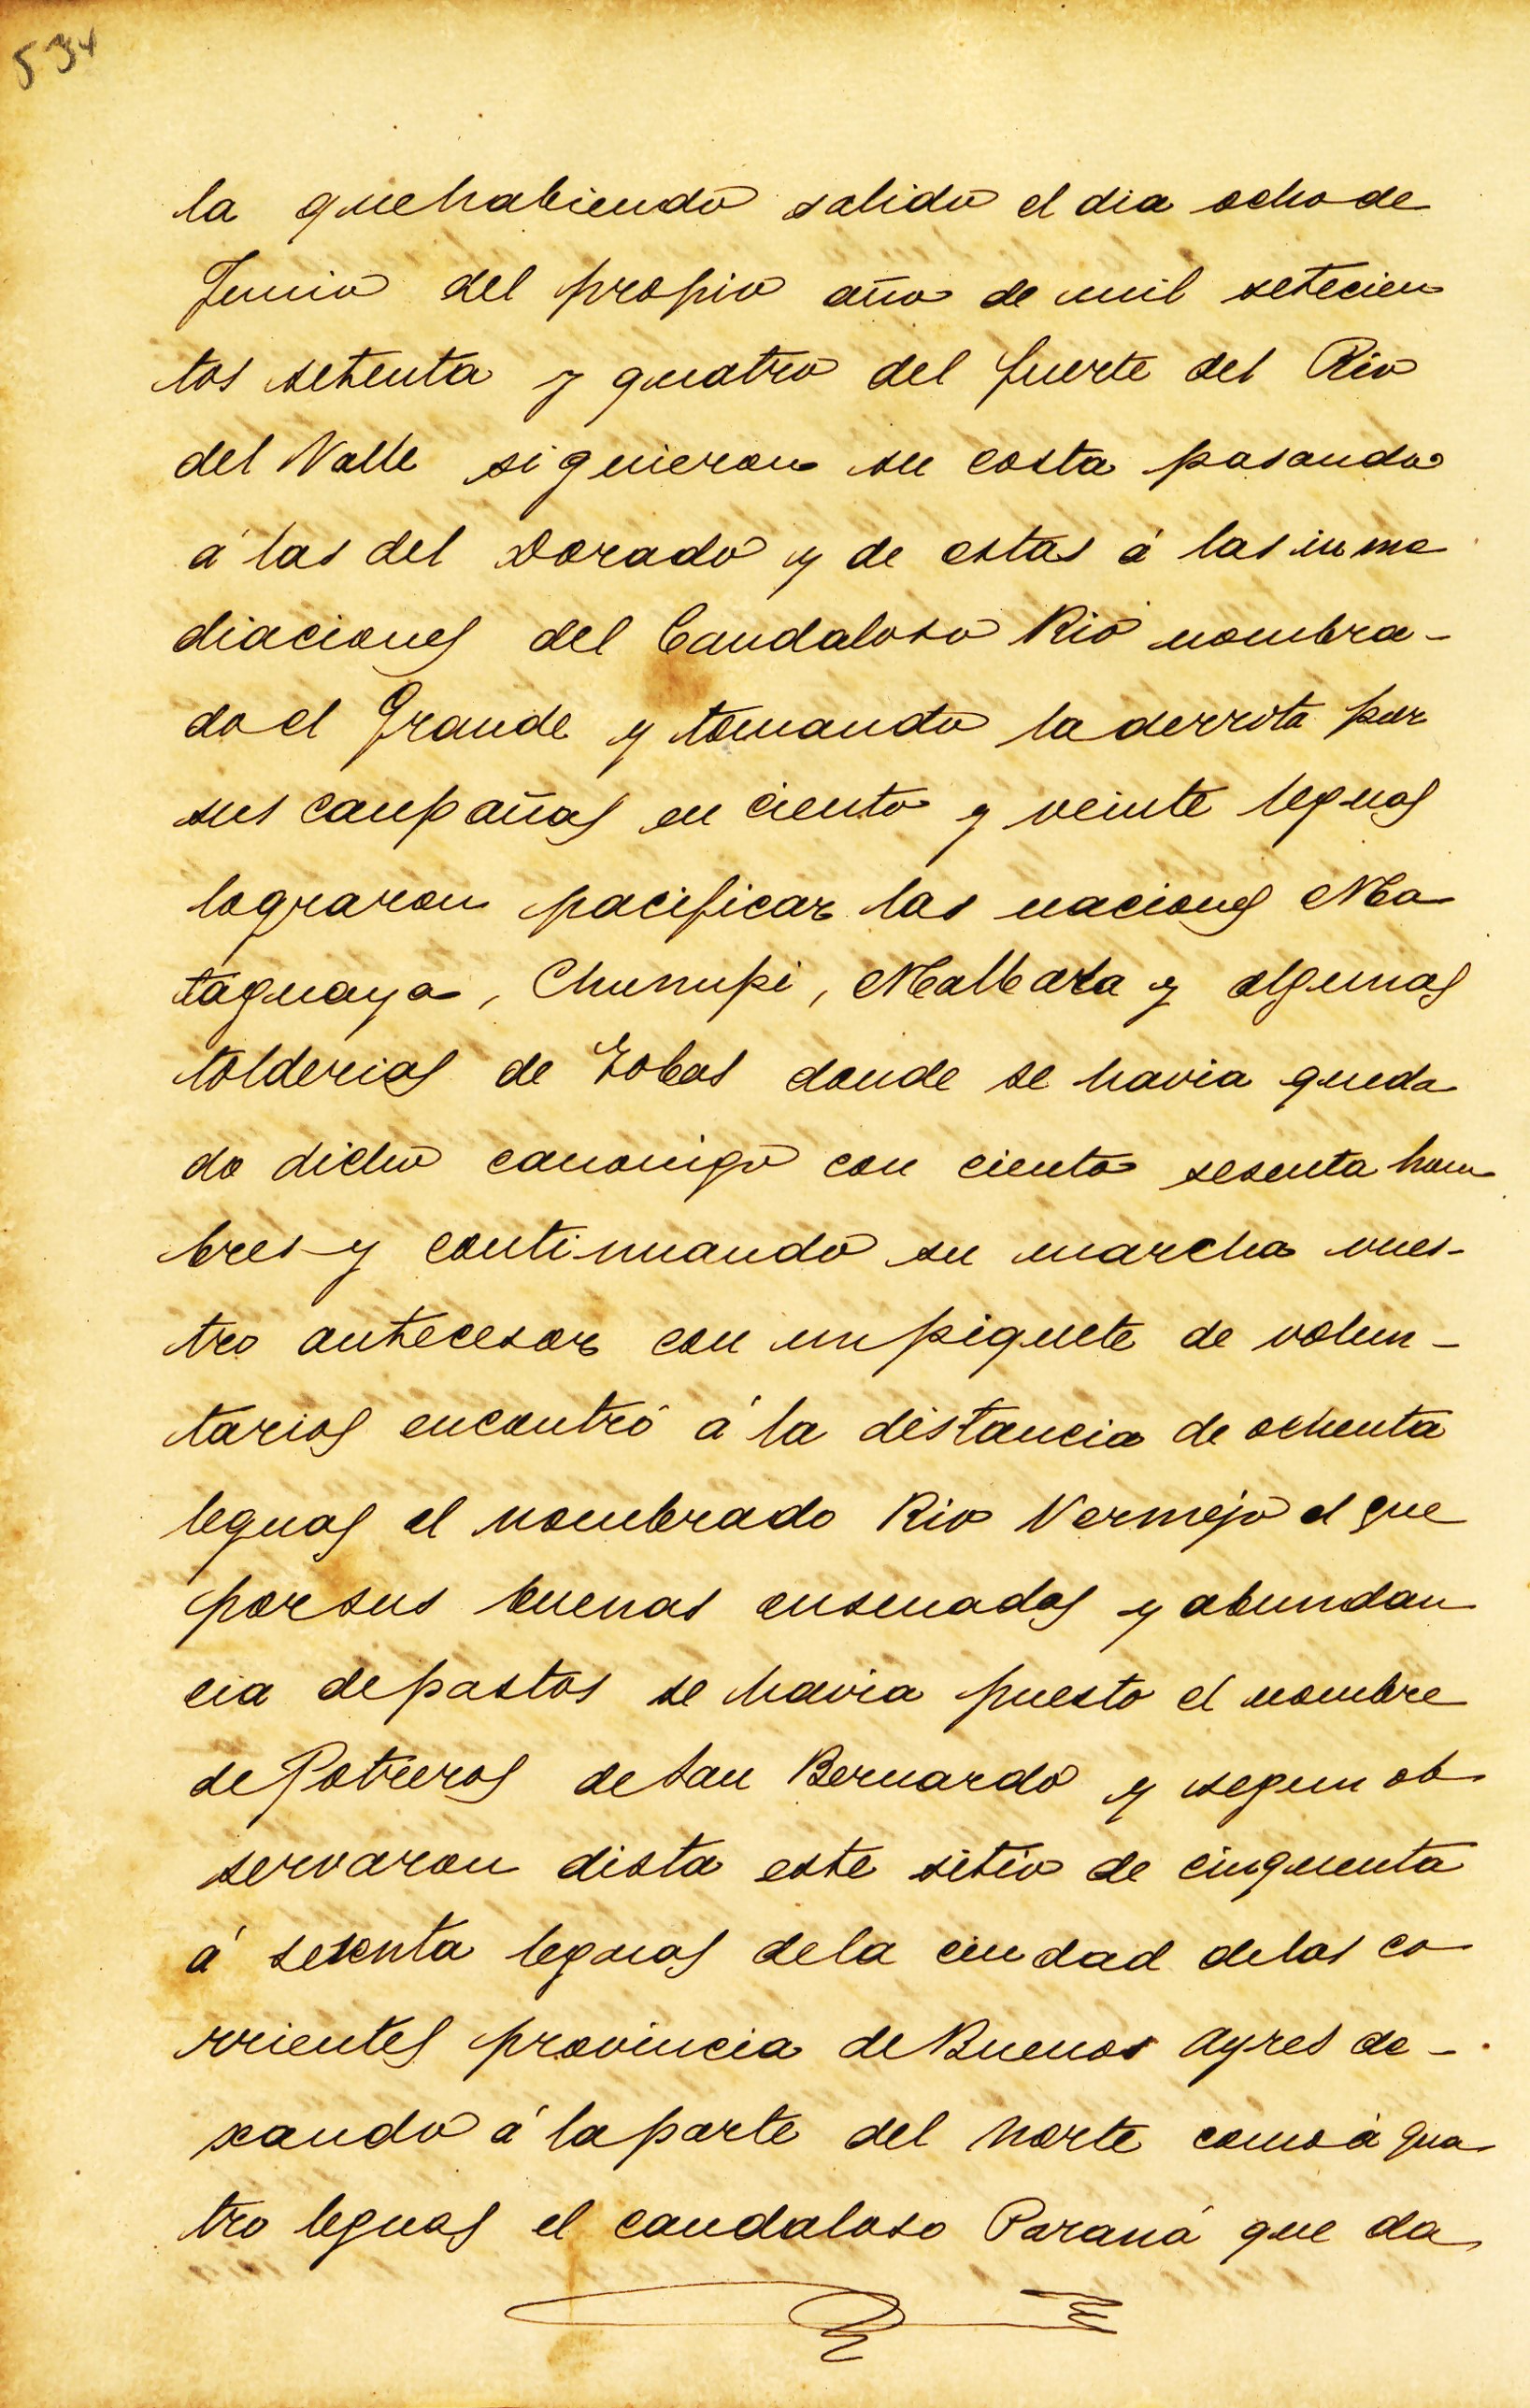 534
la que habiendo salido el dia ocho de
Junio del propio año de mil setecien
tos setenta y quatro del fuerte del Rio
del Valle siguieron su costa pasando
á las del Dorado y de estas á las inme
diaciones del Caudaloso Rio nombra-
do el Grande y tomando la derrota por
sus campañas en ciento y veinte leguas
lograron pacificar las naciones Ma
taguaya, Chunupi, Malbala y algunas
tolderias de Tobas donde se havia queda
do dicho canonigo con ciento sesenta hom
bres y continuando su marcha vues-
tro antecesor con un piquete de volun-
tarios encontró á la distancia de ochenta
leguas el nombrado Rio Vermejo el que
por sus buenas ensenadas y abundan
cia de pastos se havia puesto el nombre
de Potreros de San Bernardo y segun ob
servaron dista este sitio de cinquenta
á sesenta leguas de la ciudad de las co
rrientes provincia de Buenos Ayres de-
xando á la parte del norte como á qua
tro leguas el caudaloso Paraná que da